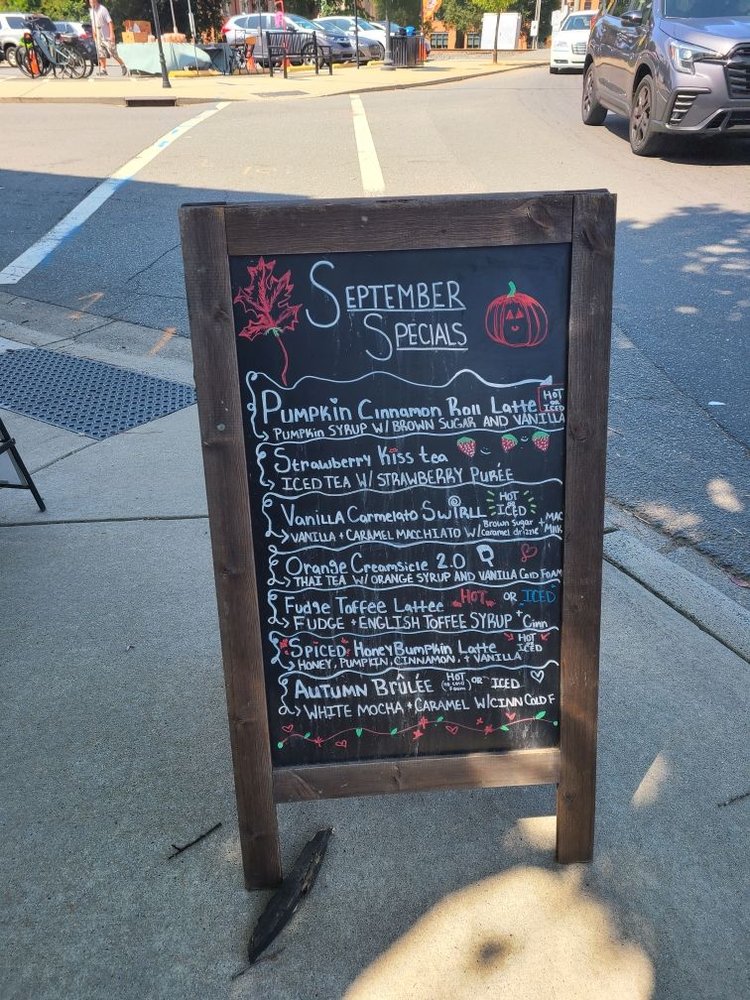 SEPTEMBER
SPECIALS
Pumpkin Cinnamon Roll Latte HOT OR ICED
PUMPKIN SYRUP W/ BROWN SUGAR AND VANILLA
Strawberry Kiss tea
ICED TEA W/ STRAWBERRY PURÉE
Vanilla Carmelato Swirll HOT OR ICED
VANILLA + CARAMEL MACCHIATO W/ Brown Sugar Caramel drizzle + MAC MILK
Orange Creamsicle 2.0
THAI TEA W/ ORANGE SYRUP AND VANILLA Cold FOAM
Fudge Toffee Lattee HOT OR ICED
FUDGE + ENGLISH TOFFEE SYRUP + Cinn
SPICED HoneyBumpkin Latte HOT ICED
HONEY, PUMPKIN, CINNAMON, + VANILLA
AUTUMN BRÛLÉE HOT OR ICED
WHITE MOCHA + CARAMEL W/CINN COLD F